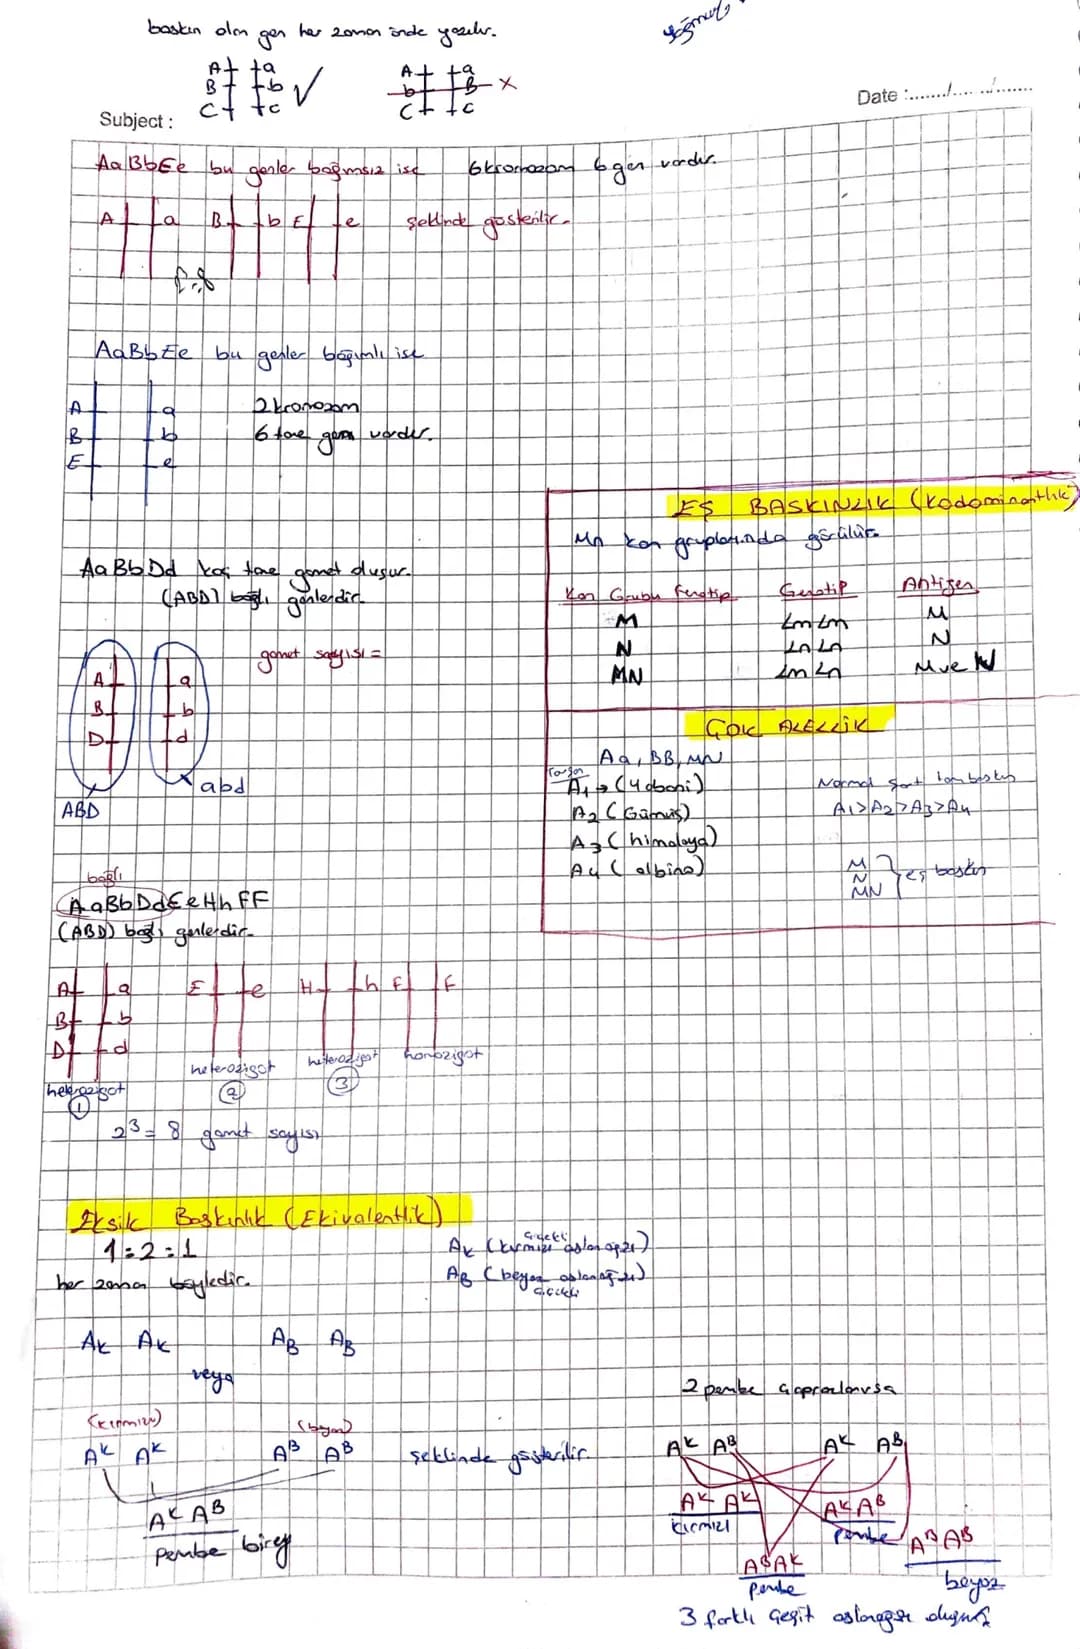 baskın olan gen her zaman önde yazılır.
A a
B b ✓
C c
A a
b B x
C c
Subject :
Date :......./.... ../.......
AaBbEe bu genler bağımsız ise 6 kromozom 6 gen vardır.
A a B b E e şeklinde gösterilir.
AaBbEe bu genler bağımlı ise
A a 2 kromozom
B b 6 tane gen vardır.
E e
AaBbDd kaç tane gamet oluşur.
(ABD) bağlı genlerdir.
gamet sayısı =
A a
B b
D d
abd
ABD
bağlı
AaBbDdEeHhFF
(ABD) bağlı genlerdir.
A a E e H h F F
B b
D d
heterozigot heterozigot heterozigot homozigot
1 2 3
2³ = 8 gamet sayısı
EŞ BASKINLIK (Kodominantlık)
Mn kan gruplarında görülür.
Kan Grubu Fenotip Genotip Antijen
M LmLm M
N LnLn N
MN LmLn M ve N
ÇOK ALELLİK
Aa, BB, MN
Tavşan
A1 → (Yabani)
A2 (Gümüş)
A3 (himalaya)
A4 (albino)
Normal şart tam baskın
A1>A2>A3>A4
M
N eş baskın
MN
Eksik Baskınlık (Ekivalentlik)
1:2:1
her zaman böyledir.
çiçekli
AK (kırmızı aslanağzı)
AB (beyaz aslanağzı)
çiçekli
AK AK AB AB
veya
(kırmızı) (beyaz)
AK AK AB AB şeklinde gösterilir.
AK AB
Pembe birey
2 pembe çaprazlanırsa
AK AB AK AB
AK AK
kırmızı
AK AB
pembe
AB AK
pembe
AB AB
beyaz
3 farklı çeşit aslanağzı